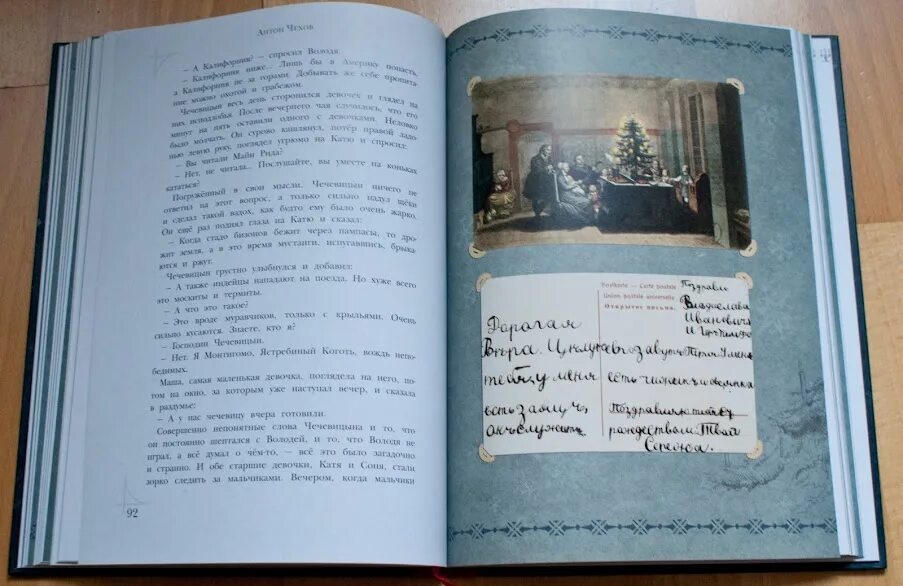 Антон Чехов
– А Калифорния? – спросил Володя.
– Калифорния ниже... Лишь бы в Америку попасть,
а Калифорния не за горами. Добывать же себе пропита-
ние можно охотой и грабежом.
Чечевицын весь день сторонился девочек и глядел на
них исподлобья. После вечернего чая случилось, что его
минут на пять оставили одного с девочками. Неловко
было молчать. Он сурово кашлянул, потёр правой ладо-
нью левую руку, поглядел угрюмо на Катю и спросил:
– Вы читали Майн Рида?
– Нет, не читала... Послушайте, вы умеете на коньках
кататься?
Погружённый в свои мысли, Чечевицын ничего не
ответил на этот вопрос, а только сильно надул щёки
и сделал такой вздох, как будто ему было очень жарко.
Он ещё раз поднял глаза на Катю и сказал:
– Когда стадо бизонов бежит через пампасы, то дро-
жит земля, а в это время мустанги, испугавшись, брыка-
ются и ржут.
Чечевицын грустно улыбнулся и добавил:
– А также индейцы нападают на поезда. Но хуже всего
это москиты и термиты.
– А что это такое?
– Это вроде муравчиков, только с крыльями. Очень
сильно кусаются. Знаете, кто я?
– Господин Чечевицын.
– Нет. Я Монтигомо, Ястребиный Коготь, вождь непо-
бедимых.
Маша, самая маленькая девочка, поглядела на него, по-
том на окно, за которым уже наступал вечер, и сказала
в раздумье:
– А у нас чечевицу вчера готовили.
Совершенно непонятные слова Чечевицына и то, что
он постоянно шептался с Володей, и то, что Володя не
играл, а всё думал о чём-то, – всё это было загадочно
и странно. И обе старшие девочки, Катя и Соня, стали
зорко следить за мальчиками. Вечером, когда мальчики
92
Postkarte – Carte postale
Union postale universelle
Открытое письмо.
Поздравь
Владислава
Ивановича
и
Дорогая
Вера. Целую
тебя у меня
есть
Поздравляю тебя с
рождеством Твой
Сережа.